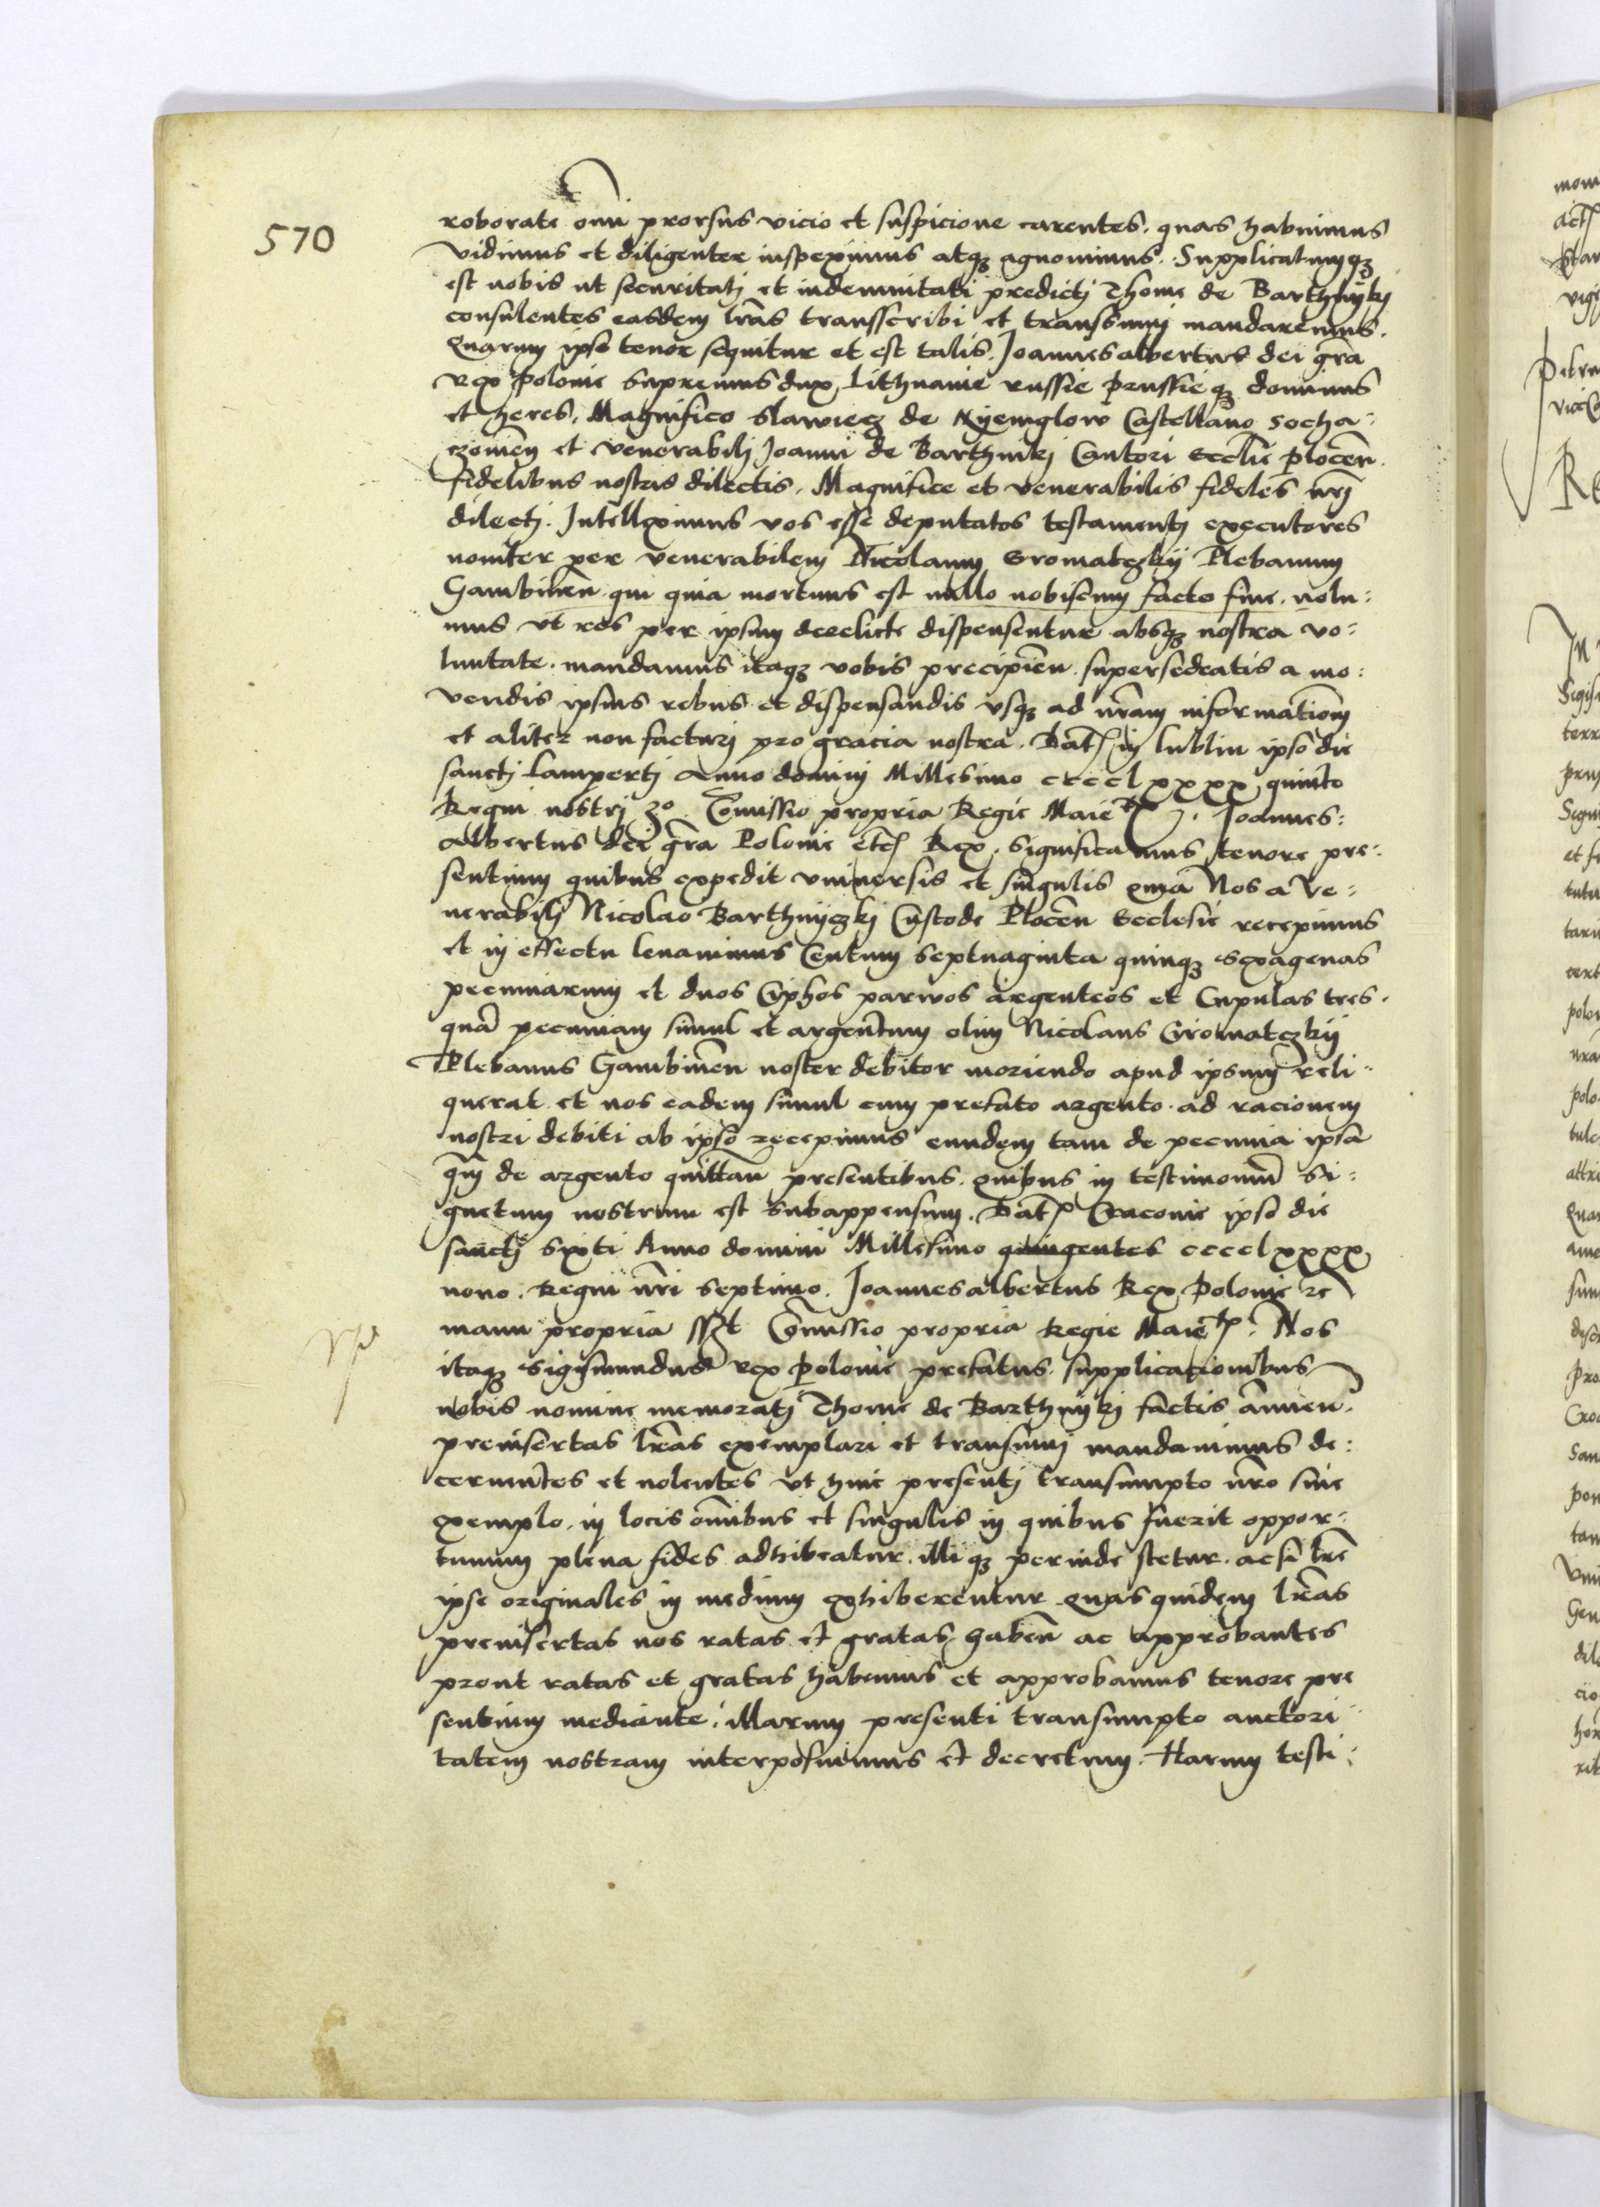 570
roborate om̄i prorsus vicio et suspicione carentes, quas habuimus
vidimus et diligenter inspeximus atqȝ agnovimus. Supplicatumqȝ
est nobis ut securitatj et indemnitati predictj Thome de Barthnykj
consulentes easdem lr̄as transscribi et transsumj mandaremus.
Quarum ipse tenor sequitur et est talis. Joannes albertus dei gr̄a
rex polonie supremus dux lithuanie russie prussieqȝ dominus
et heres. Magnifico Slawiecz de Nyemglow Castellano Socha-
czovien̄ et venerabilj Joanni de Barthnikj Cantori Eccl̄ie plocen̄.
fidelibus nostris dilectis. Magnifice et venerabilis fideles nr̄j
dilectj. Intelleximus vos esse deputatos testamentj executores
noviter per venerabilem Nicolaum Gromatczkij Plebanum
Gambinen̄ qui quia mortuus est nullo nobiscum facto fine. nolu-
mus ut res per ipsum derelicte dispensentur absqȝ nostra vo-
luntate. mandamus itaqȝ vobis precipien̄ supersedeatis a mo-
vendis ipsius rebus et dispensandis usqȝ ad nr̄am informationem
et aliter non facturj pro gracia nostra. Dat̄ in lublin ipso die
sanctj lampertj Anno dominj Millesimo cccclxxxx quinto
Regni nostrj 3o. Com̄issio propria Regie Maietꝭ. Joannes
Albertus dei gr̄a Polonie etc̄ Rex. Significamus tenore pre-
sentium quibus expedit universis et singulis quia Nos a Ve-
nerabilj Nicolao Barthnyczkj Custode Plocen̄ Ecclesie recepimus
et in effectu levavimus Centum septuaginta quinqȝ sexagenas
pecuniarum et duos Cyphos parvos argenteos et Cupulas tres.
quā pecuniam simul et argentum olim Nicolaus Gromatczkij
Plebanus Gambinen̄ noster debitor moriendo apud ipsum reli-
querat et nos eadem simul cum prefato argento ad racionem
nostri debiti ab ipso recepimus eundem tam de pecunia ipsa
qm̄ de argento quittan̄ presentibus. quibus in testimoniū Si-
gnetum nostrum est subappensum. Dat̄ Cracovie ipso die
sanctj Sixti Anno domini Millesimo quingentes cccclxxxx
nono. Regni nr̄i septimo. Joannes albertus Rex Polonie ꝛc
manu propria sszt Com̄issio propria Regie Maietꝭ. Nos
itaqȝ Sigismundus rex polonie prefatus supplicationibus
nobis nomine memoratj Thome de Barthnykj factis annuen̄.
preinsertas lr̄as exemplari et transumj mandavimus de-
cernentes et volentes ut huic presentj transumpto nr̄o sive
exemplo. in locis om̄ibus et singulis in quibus fuerit oppor-
tunum plena fides adhibeatur. illiqȝ perinde stetur. ac si lr̄e
ipse originales in medium exhiberentur quas quidem lr̄as
preinsertas nos ratas et gratas haben̄ ac approbantes
prout ratas et gratas habemus et approbamus tenore pre
sentium mediante. illarum presenti transumpto auctori
tatem nostram interposuimus et decretum. Harum testi-